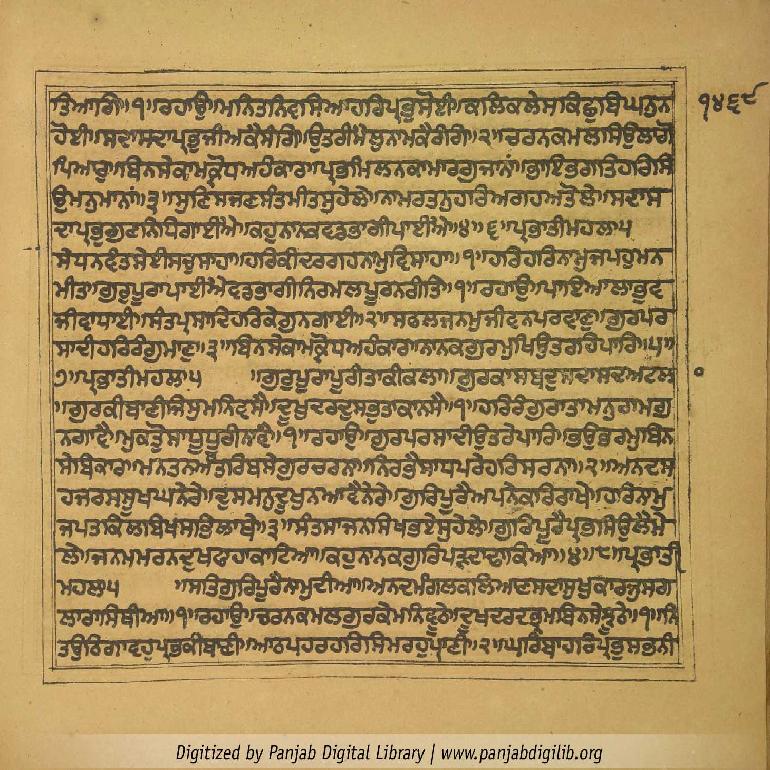 ਤਿਆਗੀ॥੧॥ਰਹਾਉ॥ਮਨਿਤਨਿਵਸਿਆਹਰਿਪ੍ਰਭੁਸੋਈ॥ਕਲਿਕਲੇਸਾਕਿਛੁਬਿਘਨੁਨ
ਹੋਈ॥ਸਦਾਸਦਾਪ੍ਰਭੁਜੀਅਕੈਸੰਗਿ॥ਉਤਰੀਮੈਲੁਨਾਮਕੈਰੰਗਿ॥੨॥ਚਰਨਕਮਲਸਿਉਲਾਗੋ
ਪਿਆਰੁ॥ਬਿਨਸੇਕਾਮਕ੍ਰੋਧਅਹੰਕਾਰ॥ਪ੍ਰਭਮਿਲਨਕਾਮਾਰਗੁਜਾਨਾਂ॥ਭਾਇਭਗਤਿਹਰਿਸਿ
ਉਮਨੁਮਾਨਾਂ॥੩॥ਸੁਣਿਸਜਣਸੰਤਮੀਤਸੁਹੇਲੇ॥ਨਾਮੁਰਤਨੁਹਰਿਅਗਹਅਤੋਲੇ॥ਸਦਾਸ
ਦਾਪ੍ਰਭੁਗੁਣਨਿਧਿਗਾਈਐ॥ਕਹੁਨਾਨਕਵਡਭਾਗੀਪਾਈਐ॥੪॥੬॥ਪ੍ਰਭਾਤੀਮਹਲਾ੫
ਸੇਧਨਵੰਤਸੇਈਸਚੁਸਾਹਾ॥ਹਰਿਕੀਦਰਗਹਨਾਮੁਵਿਸਾਹਾ॥੧॥ਹਰਿਹਰਿਨਾਮੁਜਪਹੁਮਨ
ਮੀਤਾ॥ਗੁਰੁਪੂਰਾਪਾਈਐਵਡਭਾਗੀਨਿਰਮਲਪੂਰਨਰੀਤਿ॥੧॥ਰਹਾਉ॥ਪਾਇਆਲਾਭੁਵ
ਜੀਵਾਧਾਈ॥ਸੰਤਪ੍ਰਸਾਦਿਹਰਿਕੇਗੁਨਗਾਈ॥੨॥ਸਫਲਜਨਮੁਜੀਵਨਪਰਵਾਣੁ॥ਗੁਰਪਰ
ਸਾਦੀਹਰਿਰੰਗੁਮਾਣੁ॥੩॥ਬਿਨਸੇਕਾਮਕ੍ਰੋਧਅਹੰਕਾਰ॥ਨਾਨਕਗੁਰਮੁਖਿਉਤਰਹਿਪਾਰਿ॥੫॥
੭॥ਪ੍ਰਭਾਤੀਮਹਲਾ੫ ॥ਗੁਰੁਪੂਰਾਪੂਰੀਤਾਕੀਕਲਾ॥ਗੁਰਕਾਸਬਦੁਸਦਾਸਦਅਟਲ
॥ਗੁਰਕੀਬਾਣੀਜਿਸੁਮਨਿਵਸੈ॥ਦੂਖੁਦਰਦੁਸਭੁਤਾਕਾਨਸੈ॥੧॥ਹਰਿਰੰਗਿਰਾਤਾਮਨੁਰਾਮਗੁ
ਨਗਾਵੈ॥ਮੁਕਤੋੁਸਾਧੂਧੂਰੀਨਾਵੈ॥੧॥ਰਹਾਉ॥ਗੁਰਪਰਸਾਦੀਉਤਰੇਪਾਰਿ॥ਭਉਭਰਮੁਬਿਨ
ਸੇਬਿਕਾਰ॥ਮਨਤਨਅੰਤਰਿਬਸੇਗੁਰਚਰਨਾ॥ਨਿਰਭੈਸਾਧਪਰੇਹਰਿਸਰਨਾ॥੨॥ਅਨਦਸ
ਹਜਰਸਸੂਖਘਨੇਰੇ॥ਦੁਸਮਨੁਦੂਖੁਨਆਵੈਨੇਰੇ॥ਗੁਰਿਪੂਰੈਅਪਨੇਕਰਿਰਾਖੇ॥ਹਰਿਨਾਮੁ
ਜਪਤਕਿਲਬਿਖਸਭਿਲਾਥੇ॥੩॥ਸੰਤਸਾਜਨਸਿਖਭਏਸੁਹੇਲੇ॥ਗੁਰਿਪੂਰੈਪ੍ਰਭਸਿਉਲੈਮੇ
ਲੇ॥ਜਨਮਮਰਨਦੁਖਫਾਹਾਕਾਟਿਆ॥ਕਹੁਨਾਨਕਗੁਰਿਪੜਦਾਢਾਕਿਆ॥੪॥੮॥ਪ੍ਰਭਾਤੀ
ਮਹਲਾ੫ ॥ਸਤਿਗੁਰਿਪੂਰੈਨਾਮੁਦੀਆ॥ਅਨਦਮੰਗਲਕਲਿਆਣਸਦਾਸੁਖੁਕਾਰਜੁਸਗ
ਲਾਰਾਸਿਥੀਆ॥੧॥ਰਹਾਉ॥ਚਰਨਕਮਲਗੁਰਕੇਮਨਿਵੂਠੇ॥ਦੂਖਦਰਦਭ੍ਰਮਬਿਨਸੇਝੂਠੇ॥੧॥ਨਿ
ਤਉਠਿਗਾਵਹੁਪ੍ਰਭਕੀਬਾਣੀ॥ਆਠਪਹਰਹਰਿਸਿਮਰਹੁਪ੍ਰਾਣੀ॥੨॥ਘਰਿਬਾਹਰਿਪ੍ਰਭੁਸਭਨੀ
੧੪੬੯
Digitized by Panjab Digital Library | www.panjabdigilib.org